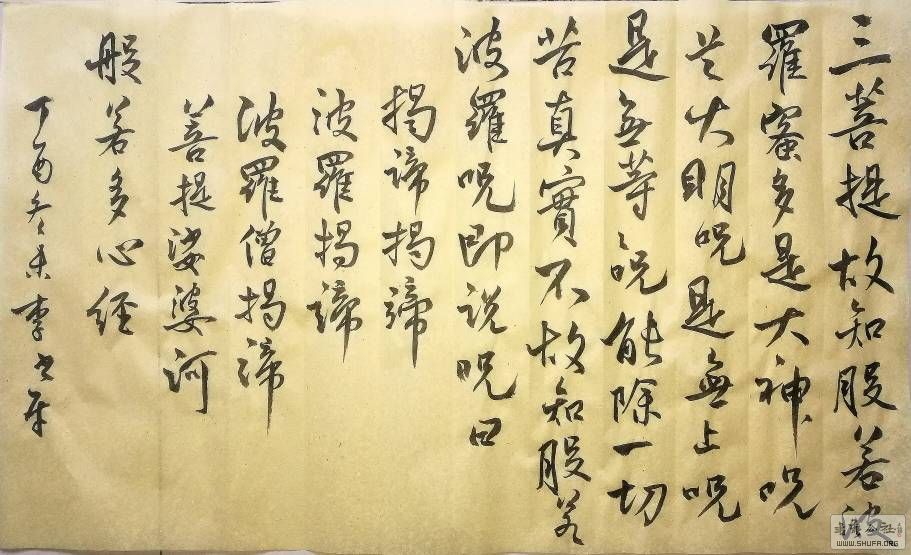 三菩提故知般若波
羅蜜多是大神呪
是大明呪是無上呪
是無等々呪能除一切
苦真實不故知般若
波羅呪即说呪曰
揭諦揭諦
波羅揭諦
波羅僧揭諦
菩提娑婆诃
般若多心经
丁酉冬末李
WWW.SHUFA.ORG